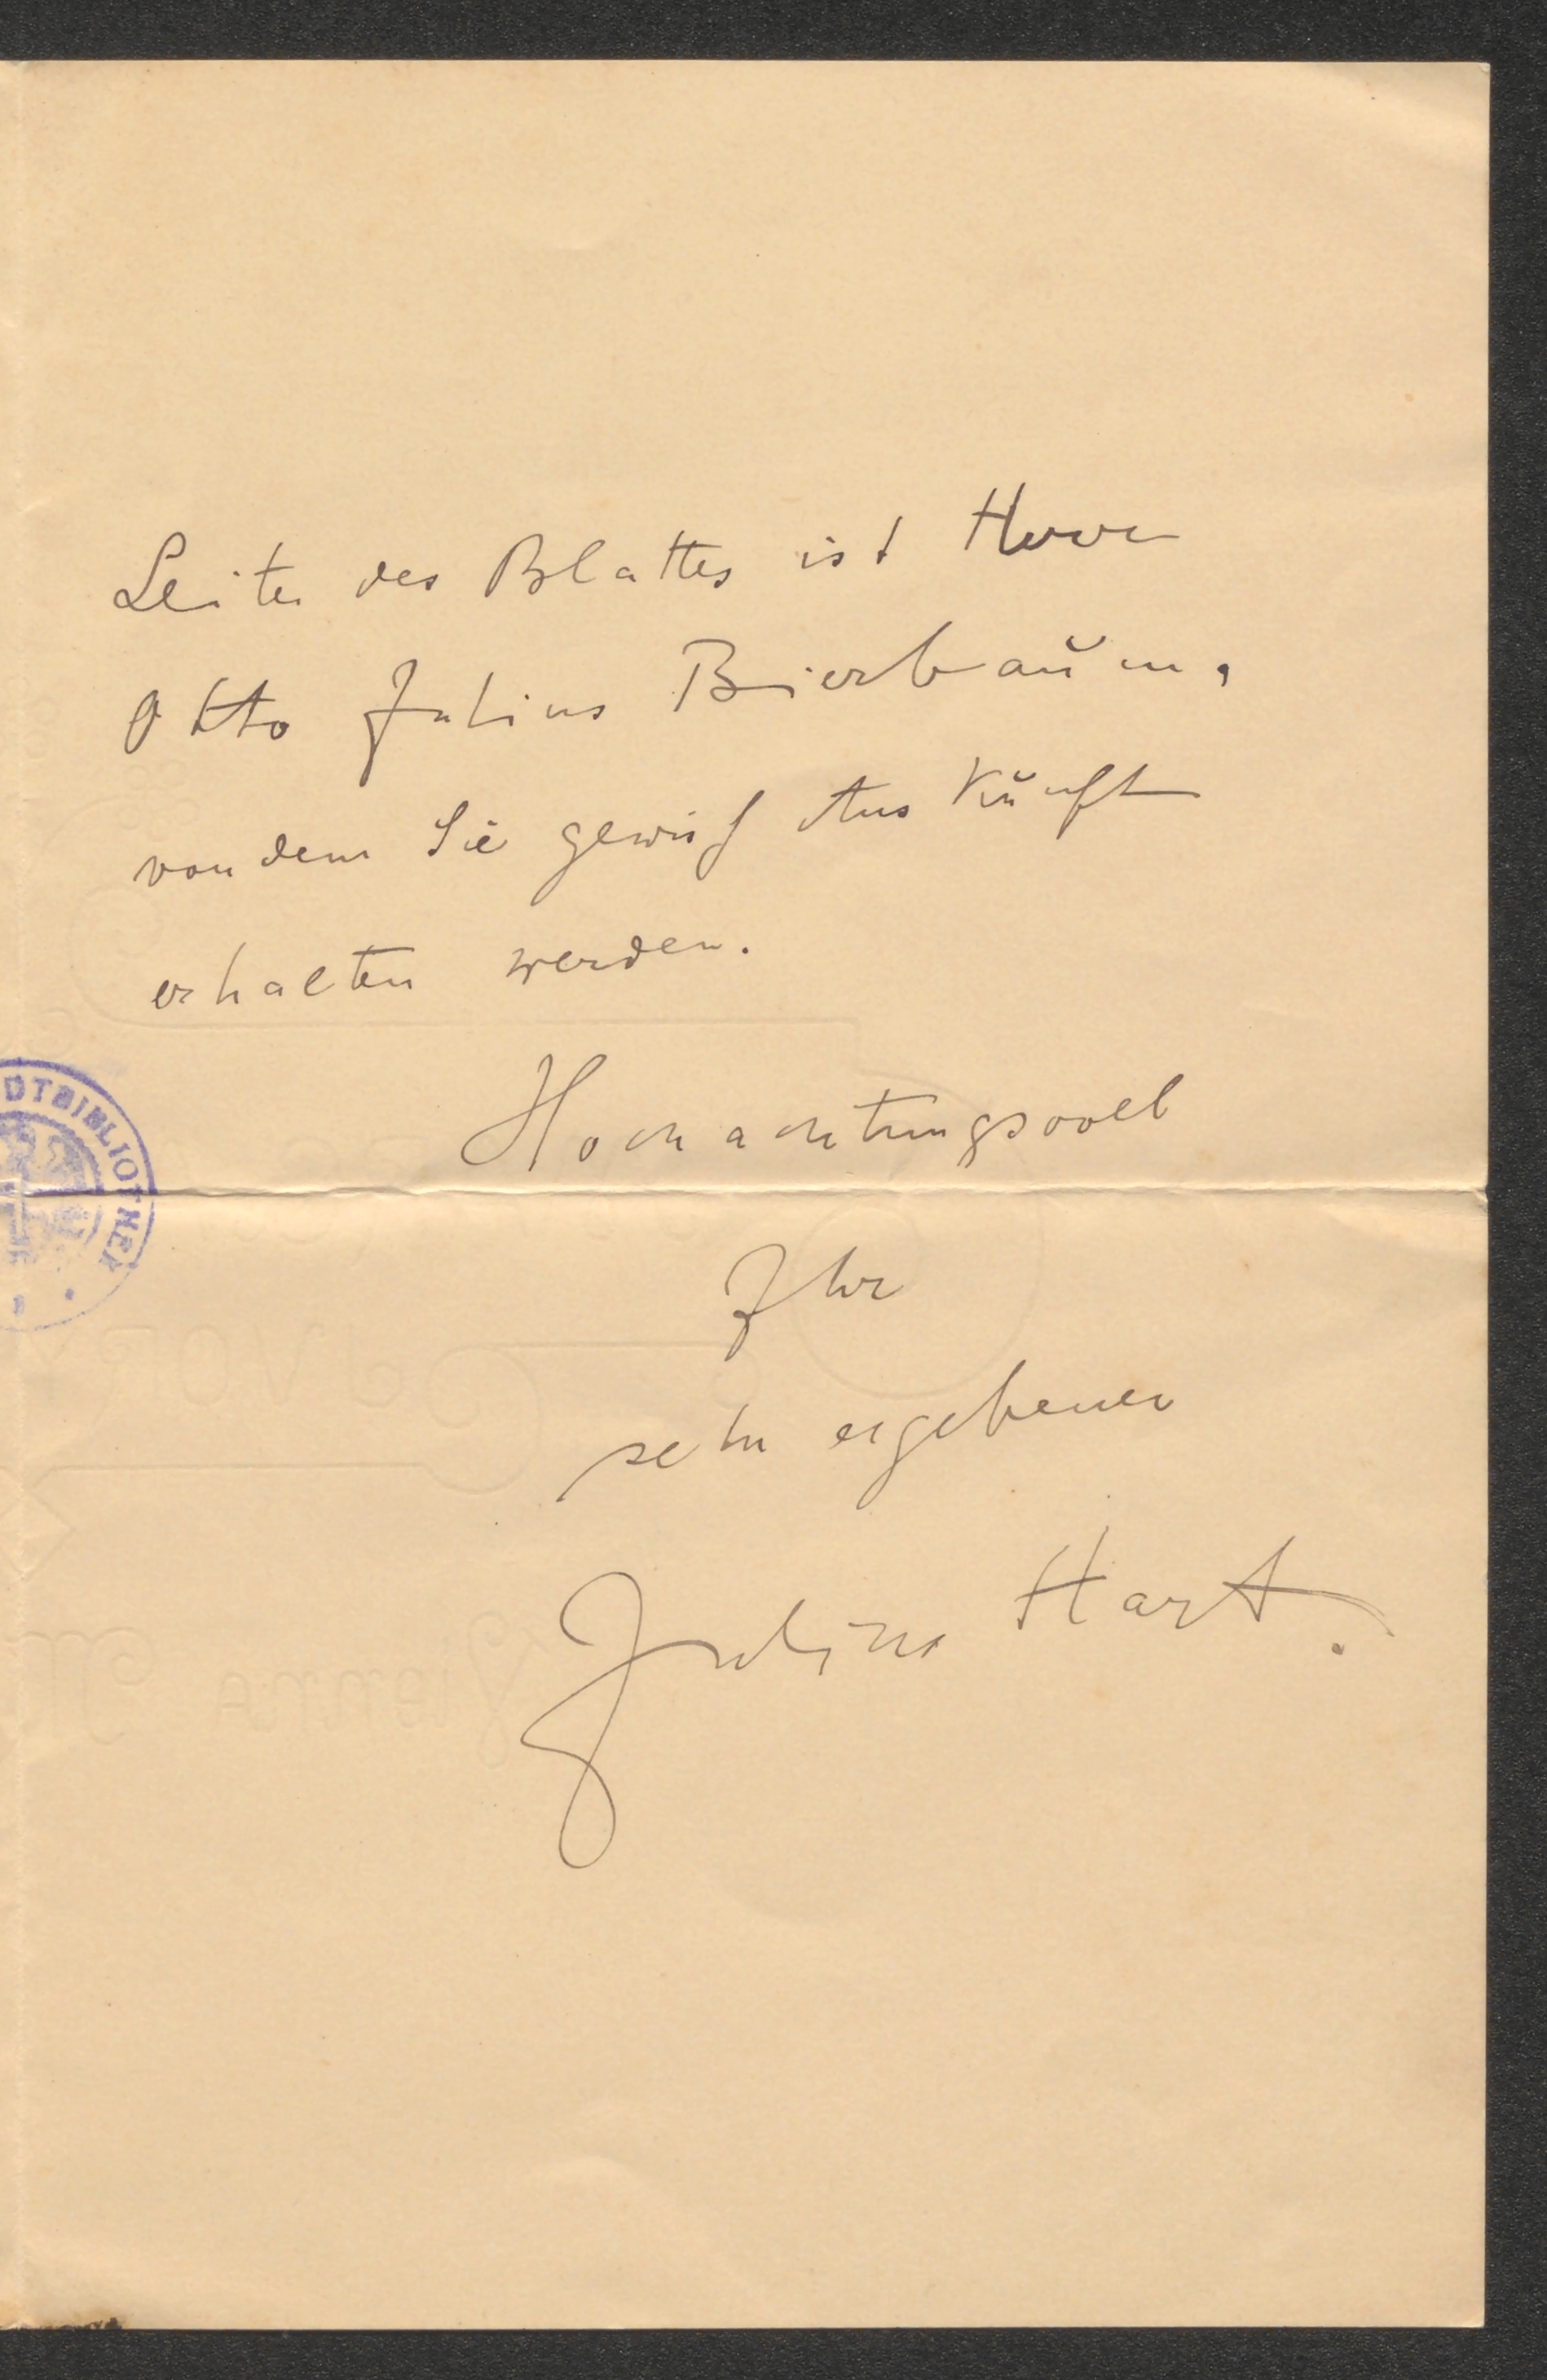 Leiter des Blattes ist Herr
Otto Julius Bierbaum,
von dem Sie gewiß Auskunft
erhalten werden.
Hochachtungsvoll
DTBIBLIOTHEK
Ihr
sehr ergebener
Julius Hart.